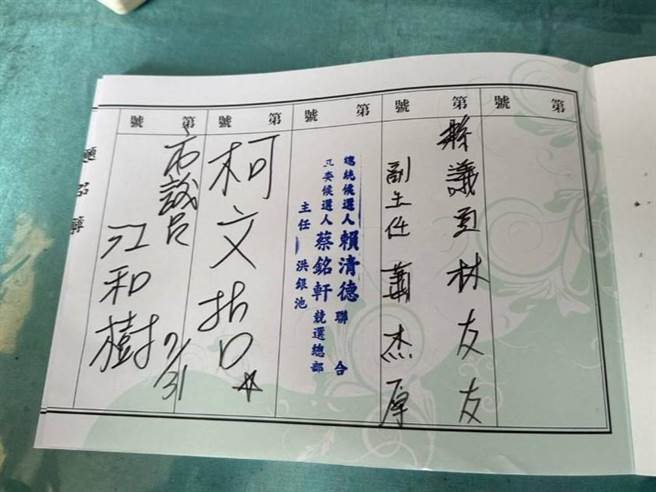 第 號
第 號
第 號
第 號
第 號
縣議員林友友
副主任 蕭杰厚
總統候選人 賴清德 聯合
立委候選人 蔡銘軒 競選總部
主任 洪銀池
柯文哲
市議員
江和樹 7/31
題名簿